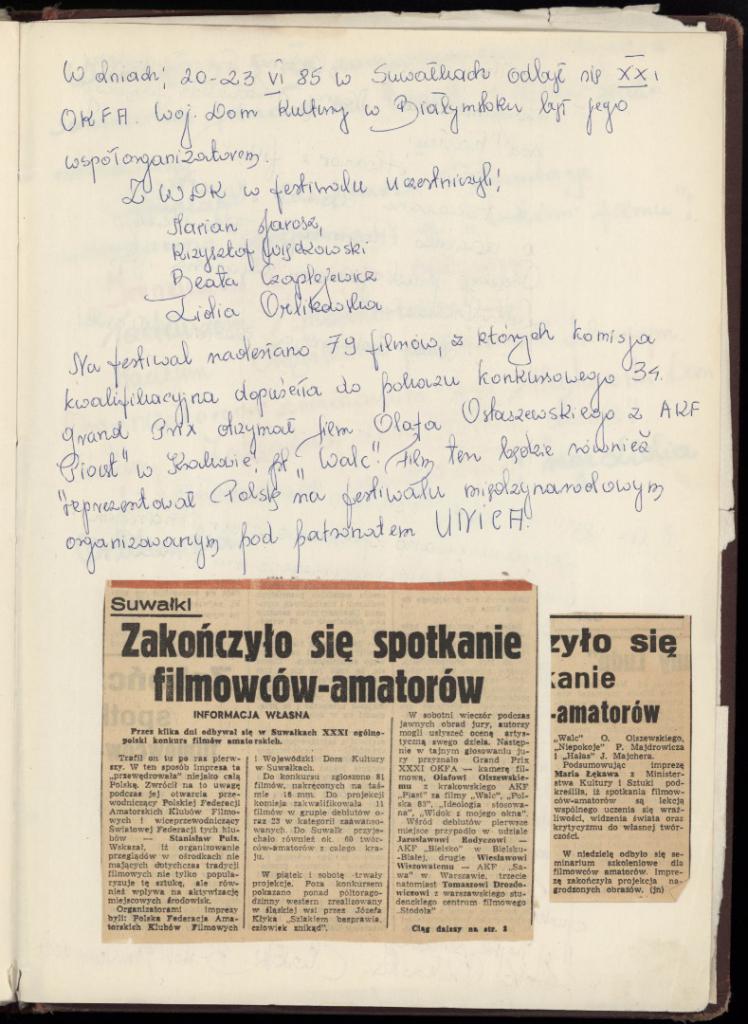 W dniach; 20-23 VI 85 w Suwałkach odbył się XXXI
OKFA. Woj. Dom Kultury w Białymstoku był jego
współorganizatorem.
Z WDK w festiwalu uczestniczyli;
Marian Jarosz,
Krzysztof
Beata Czaplejewicz
Lidia Orlikowska
Na festiwal nadesłano 79 filmów, z których komisja
kwalifikacyjna dopuściła do pokazu konkursowego 34.
Grand Prix otrzymał film Olafa Ostaszewskiego z AKF
"Piast" w Krakowie, pt "Walc". Film ten będzie również
reprezentował Polskę na festiwalu międzynarodowym
organizowanym pod patronatem UNICA.
Suwałki
Zakończyło się spotkanie
filmowców-amatorów
INFORMACJA WŁASNA
Przez kilka dni odbywał się w Suwałkach XXXI ogólno-
polski konkurs filmów amatorskich.
Trafił on tu po raz pierw-
szy. W ten sposób impreza ta
„przewędrowała” niejako całą
Polskę. Zwrócił na to uwagę
podczas jej otwarcia prze-
wodniczący Polskiej Federacji
Amatorskich Klubów Filmo-
wych i wiceprzewodniczący
Światowej Federacji tych klu-
bów — Stanisław Puls.
Wskazał, iż organizowanie
przeglądów w ośrodkach nie
mających dotychczas tradycji
filmowych nie tylko popula-
ryzuje tę sztukę, ale rów-
nież wpływa na aktywizację
miejscowych środowisk.
Organizatorami imprezy
byli: Polska Federacja Ama-
torskich Klubów Filmowych
i Wojewódzki Dom Kultury
w Suwałkach.
Do konkursu zgłoszono 81
filmów, nakręconych na taś-
mie 16 mm. Do projekcji
komisja zakwalifikowała 11
filmów w grupie debiutów o-
raz 23 w kategorii zaawanso-
wanych. Do Suwałk przyje-
chało również ok. 60 twór-
ców-amatorów z całego kra-
ju.
W piątek i sobotę trwały
projekcje. Poza konkursem
pokazano ponad półtorago-
dzinny western zrealizowany
w śląskiej wsi przez Józefa
Kłyka „Szlakiem bezprawia,
człowiek znikąd”.
W sobotni wieczór podczas
jawnych obrad jury, autorzy
mogli usłyszeć ocenę artys-
tyczną swego dzieła. Następ-
nie w tajnym głosowaniu ju-
ry przyznało Grand Prix
XXXI OKFA — kamerę fil-
mową, Olafowi Olszewskie-
mu z krakowskiego AKF
„Piast” za filmy „Walc”, „Pol-
ska 83”, „Ideologia stosowa-
na”, „Widok z mojego okna”.
Wśród debiutów pierwsze
miejsce przypadło w udziale
Jarosławowi Rodyczowi —
AKF „Bielsko” w Bielsku-
-Białej, drugie Wiesławowi
Wiesowatemu — AKF „Sa-
wa” w Warszawie, trzecie
natomiast Tomaszowi Drozdo-
wiczowi z warszawskiego stu-
denckiego centrum filmowego
„Stodoła”
Ciąg dalszy na str. 2
zyło się
kanie
-amatorów
„Walc” O. Olszewskiego,
„Niepokoje” P. Majdrowicza
i „Hałas” J. Majchera.
Podsumowując imprezę
Maria Łękawa z Minister-
stwa Kultury i Sztuki pod-
kreśliła, iż spotkania filmow-
ców-amatorów są lekcją
wspólnego uczenia się wraż-
liwości, widzenia świata oraz
krytycyzmu do własnej twór-
czości.
W niedzielę odbyło się se-
minarium szkoleniowe dla
filmowców amatorów. Impre-
zę zakończyła projekcja na-
grodzonych obrazów. (jn)